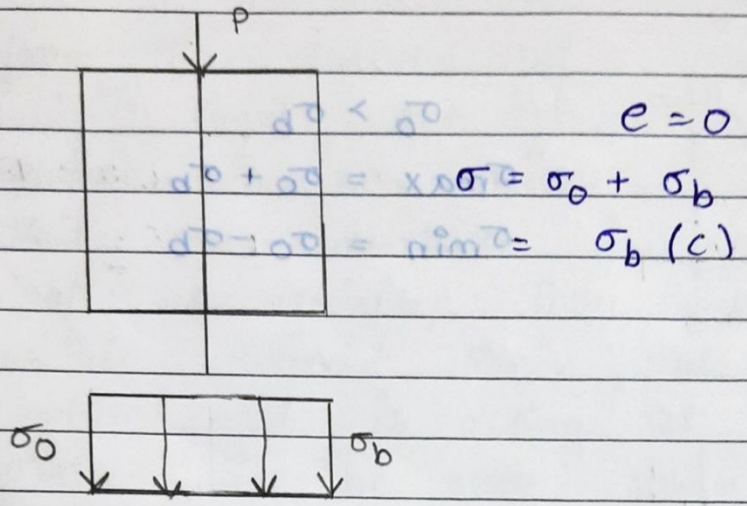 P
e = 0
σ = σ₀ + σb
= σb (c)
σ₀
σb